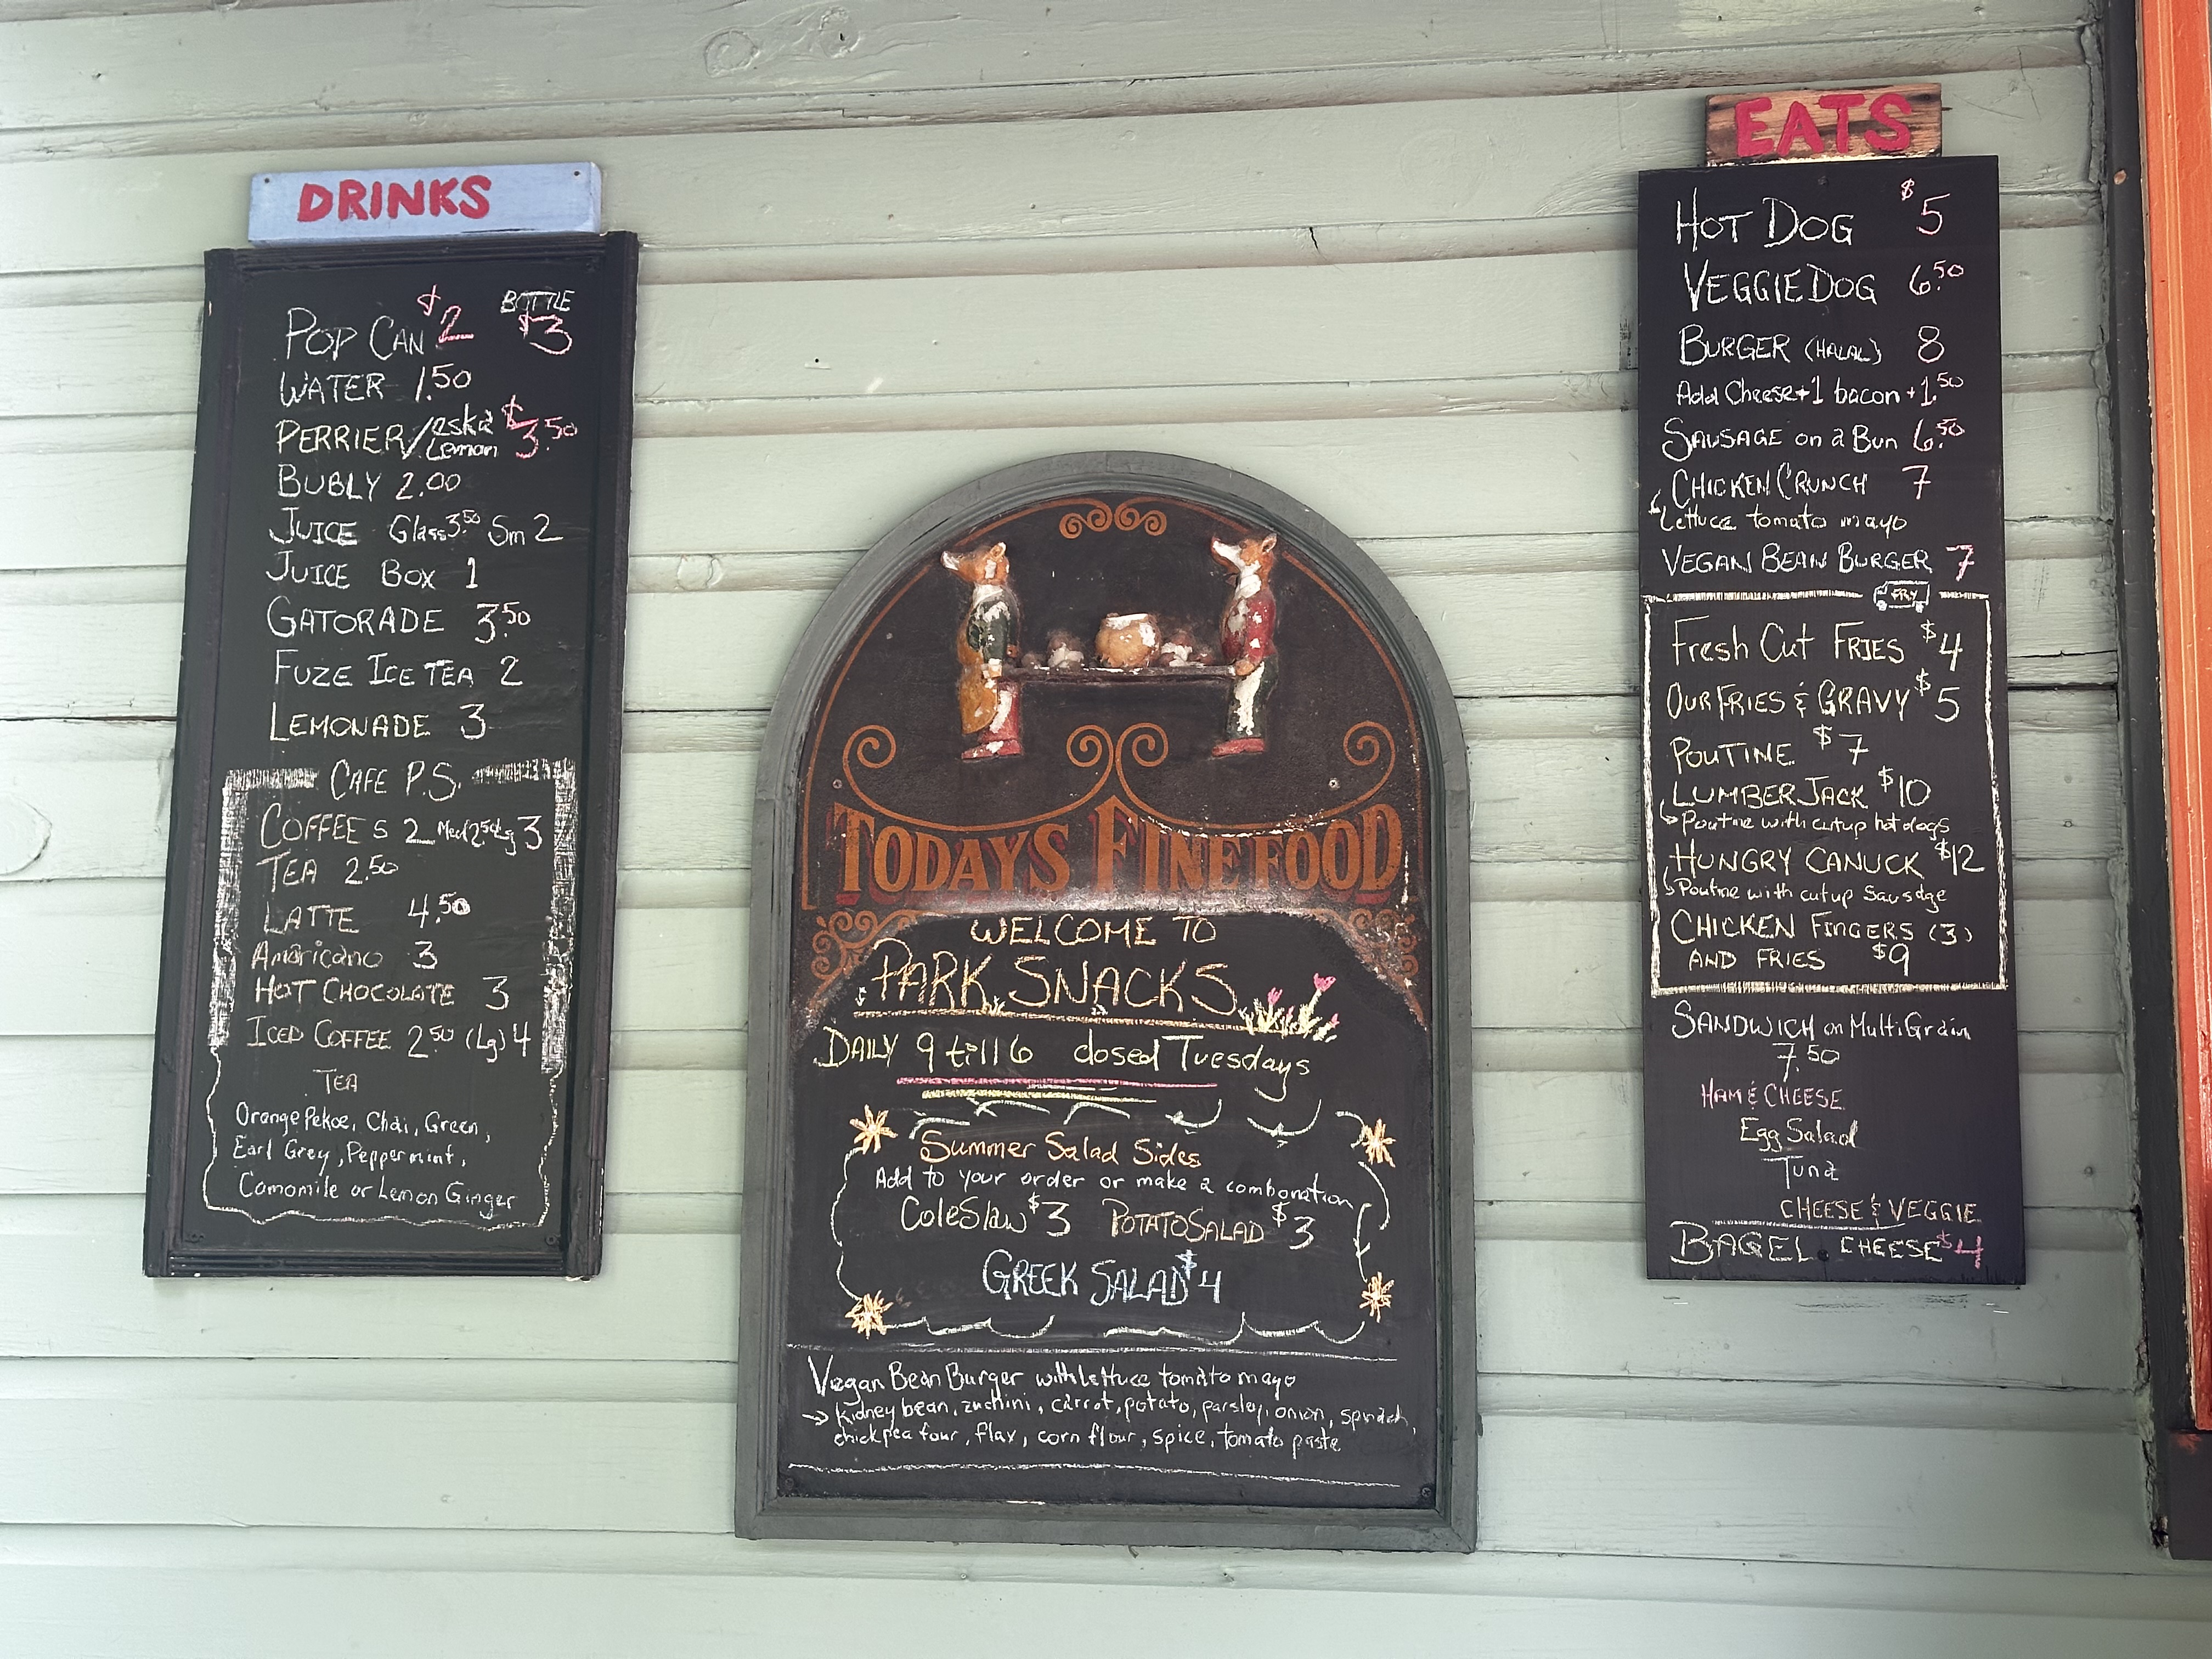 DRINKS
POP CAN $2 BOTTLE $3
WATER 1.50
PERRIER/eska Lemon $3.50
BUBLY 2.00
JUICE Glass 3.50 Sm 2
JUICE BOX 1
GATORADE 3.50
FUZE ICE TEA 2
LEMONADE 3
CAFE P.S.
COFFEE S 2 Med 2.50 Lg 3
TEA 2.50
LATTE 4.50
Americano 3
HOT CHOCOLATE 3
ICED COFFEE 2.50 (Lg) 4
TEA
Orange Pekoe, Chai, Green,
Earl Grey, Peppermint,
Camomile or Lemon Ginger
TODAYS FINE FOOD
WELCOME TO
PARK SNACKS
DAILY 9 till 6 closed Tuesdays
Summer Salad Sides
Add to your order or make a combonation
ColeSlaw $3 POTATO SALAD $3
GREEK SALAD $4
Vegan Bean Burger with lettuce tomato mayo
→ kidney bean, zuchini, carrot, potato, parsley, onion, spinach,
chickpea four, flax, corn flour, spice, tomato paste
EATS
HOT DOG $5
VEGGIE DOG 6.50
BURGER (HALAL) 8
Add Cheese +1 bacon +1.50
SAUSAGE on a Bun 6.50
CHICKEN CRUNCH 7
Lettuce tomato mayo
VEGAN BEAN BURGER 7
FRY
Fresh Cut FRIES $4
OUR FRIES & GRAVY $5
POUTINE $7
LUMBER JACK $10
Poutine with cutup hot dogs
HUNGRY CANUCK $12
Poutine with cutup Sausage
CHICKEN FINGERS (3)
AND FRIES $9
SANDWICH on MultiGrain
7.50
HAM & CHEESE
Egg Salad
Tuna
CHEESE & VEGGIE
BAGEL CHEESE $4